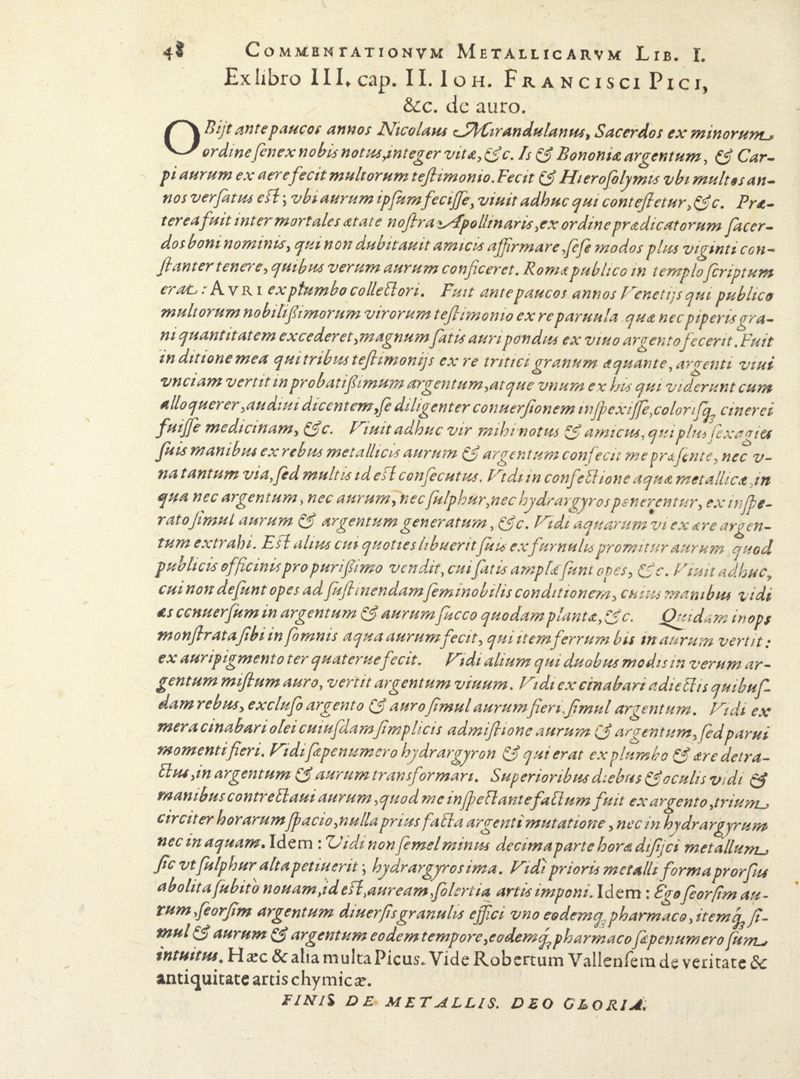 48 COMMENTATIONVM METALLICARVM LIB. I.
Ex libro III. cap. II. IOH. FRANCISCI PICI,
&c. de auro.
OBijt ante paucos annos Nicolaus Mirandulanus, Sacerdos ex minorum
ordine senex nobis notus, integer vitæ, &c. Is & Bononiæ argentum, & Car-
pi aurum ex aere fecit multorum testimonio. Fecit & Hierosolymis vbi multos an-
nos versatus est; vbi aurum ipsum fecisse, viuit adhuc qui contestetur, &c. Præ-
terea fuit inter mortales ætate nostra Apollinaris, ex ordine prædicatorum sacer-
dos boni nominis, qui non dubitauit amicis affirmare, sese modos plus viginti con-
stanter tenere, quibus verum aurum conficeret. Romæ publico in templo scriptum
erat: AVRI ex plumbo collectori. Fuit ante paucos annos Venetijs qui publico
multorum nobilißimorum virorum testimonio ex re paruula quæ nec piperis gra-
ni quantitatem excederet, magnum satis auri pondus ex viuo argento fecerit. Fuit
in ditione mea qui tribus testimonijs ex re tritici granum æquante, argenti viui
vnciam vertit in probatißimum argentum, atque vnum ex his qui viderunt cum
alloquerer, audiui dicentem, se diligenter conuersionem inspexisse, colorisq; cinerei
fuisse medicinam, &c. Viuit adhuc vir mihi notus & amicus, qui plus sexagies
suis manibus ex rebus metallicis aurum & argentum confecit me præsente, nec v-
na tantum via, sed multis id est consecutus. Vidi in confectione aquæ metallicæ, in
qua nec argentum, nec aurum, nec sulphur, nec hydrargyros ponerentur, ex inspe-
rato simul aurum & argentum generatum, &c. Vidi aquarum vi ex ære argen-
tum extrahi. Est alius cui quoties libuerit suis ex furnulis promitur aurum, quod
publicis officinis pro purißimo vendit, cui satis amplæ sunt opes, &c. Viuit adhuc,
cui non desunt opes ad sustinendam seminobilis conditionem, cuius manibus vidi
æs conuersum in argentum & aurum succo quodam plantæ, &c. Quidam inops
monstrata sibi in somnis aqua aurum fecit, qui item ferrum bis in aurum vertit:
ex auripigmento ter quaterue fecit. Vidi alium qui duobus modis in verum ar-
gentum mistum auro, vertit argentum viuum. Vidi ex cinabari adiectis quibus-
dam rebus, excluso argento & auro simul aurum fieri simul argentum. Vidi ex
mera cinabari olei cuiusdam simplicis admistione aurum & argentum, sed parui
momenti fieri. Vidi sæpenumero hydrargyron & qui erat ex plumbo & ære detra-
ctus, in argentum & aurum transformari. Superioribus diebus & oculis vidi &
manibus contrectaui aurum, quod me inspectante factum fuit ex argento, trium
circiter horarum spacio, nulla prius facta argenti mutatione, nec in hydrargyrum
nec in aquam. Idem: Vidi non semel minus decima parte horæ disijci metallum
sic vt sulphur alta petiuerit; hydrargyros ima. Vidi prioris metalli forma prorsus
abolita subitò nouam, id est, auream, solertia artis imponi. Idem: Ego seorsim au-
rum, seorsim argentum diuersis granulis effici vno eodemq; pharmaco, itemq́; si-
mul & aurum & argentum eodem tempore, eodemq́; pharmaco sæpenumero sum
intuitus. Hæc & alia multa Picus. Vide Robertum Vallensem de veritate &
antiquitate artis chymicæ.
FINIS DE METALLIS. DEO GLORIA.